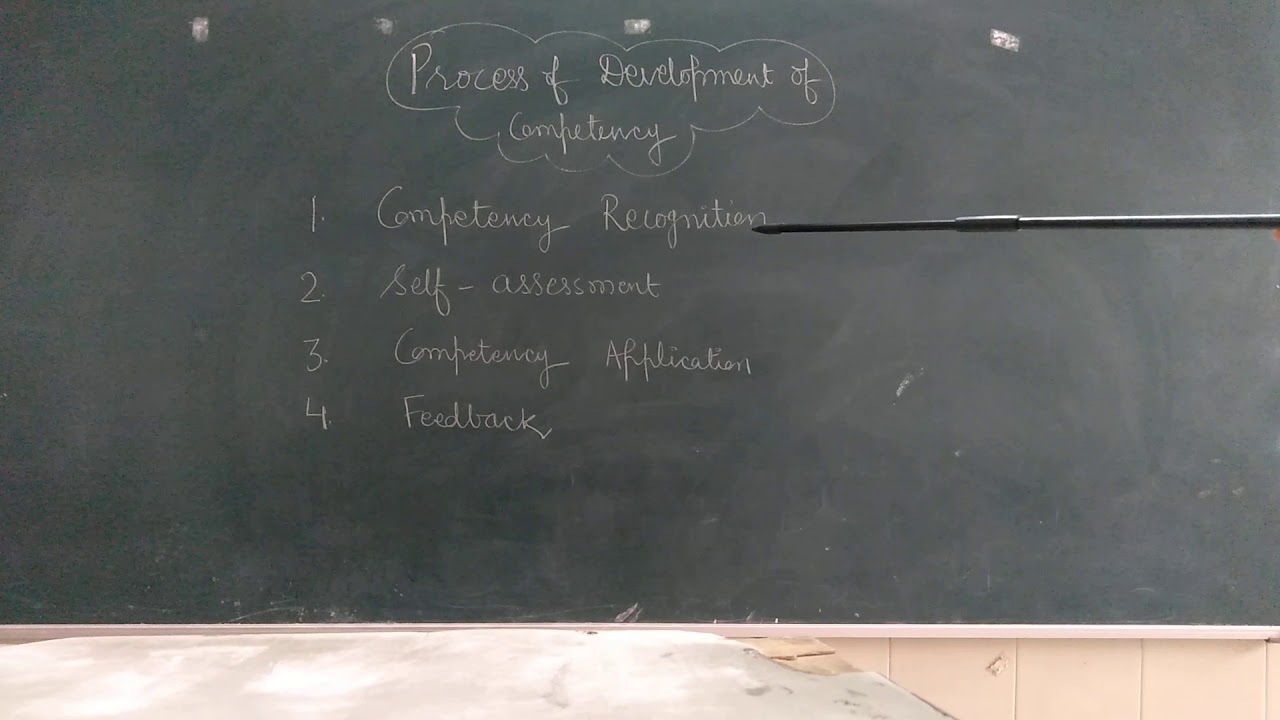 Process of Development of
Competency
1. Competency Recognition
2. Self-assessment
3. Competency Application
4. Feedback